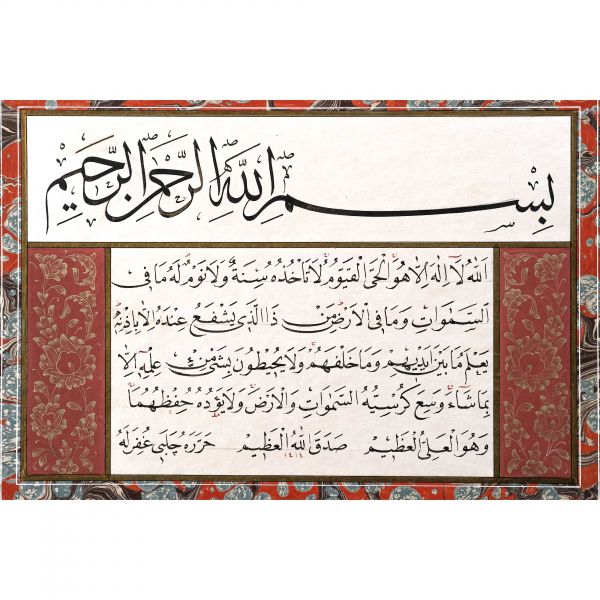 بِسْمِ اللَّهِ الرَّحْمٰنِ الرَّحِيمِ
اَللهُ لَا اِلٰهَ اِلَّا هُوَ الْحَيُّ الْقَيُّومُ لَا تَأْخُذُهُ سِنَةٌ وَلَا نَوْمٌ لَهُ مَا فِي
السَّمٰوَاتِ وَمَا فِي الْاَرْضِ مَنْ ذَا الَّذِي يَشْفَعُ عِنْدَهُ اِلَّا بِاِذْنِهِ
يَعْلَمُ مَا بَيْنَ اَيْدِيهِمْ وَمَا خَلْفَهُمْ وَلَا يُحِيطُونَ بِشَيْءٍ مِنْ عِلْمِهِ اِلَّا
بِمَا شَاءَ وَسِعَ كُرْسِيُّهُ السَّمٰوَاتِ وَالْاَرْضَ وَلَا يَؤُدُهُ حِفْظُهُمَا
وَهُوَ الْعَلِيُّ الْعَظِيمُ صَدَقَ اللهُ الْعَظِيمُ حرره چلبی غفر له
١٤١٤